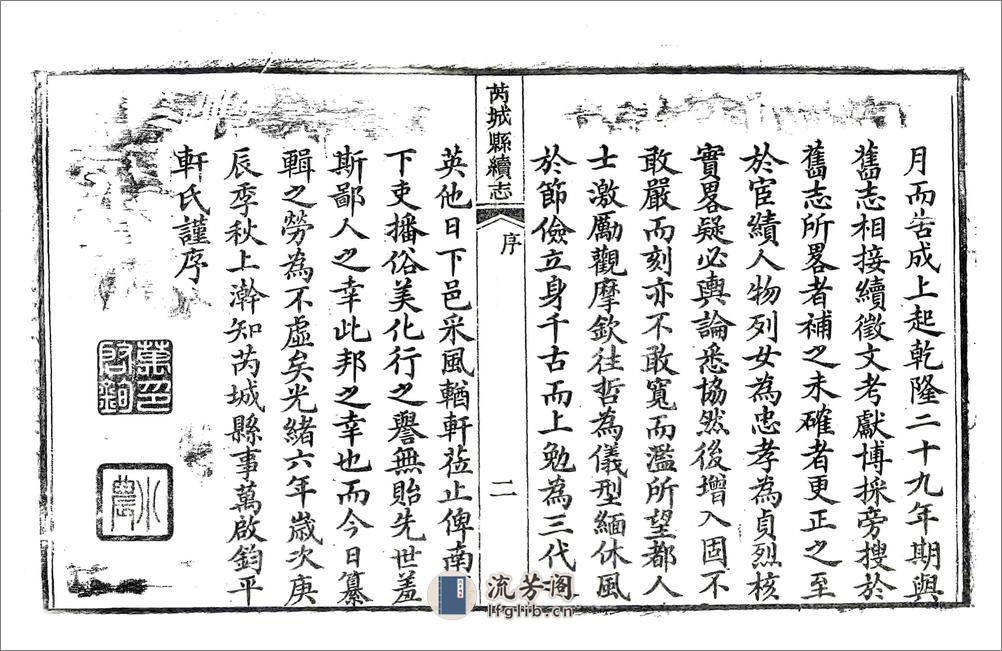 月而告成上起乾隆二十九年期與
舊志相接續徵文考獻博採旁搜於
舊志所畧者補之未確者更正之至
於宦績人物列女為忠孝為貞烈核
實畧疑必輿論悉協然後增入固不
敢嚴而刻亦不敢寬而濫所望都人
士激厲觀摩欽往哲為儀型緬休風
於節儉立身千古而上勉為三代
芮城縣續志
序
二
英他日下邑采風輶軒蒞止俾南
下吏播俗美化行之譽無貽先世羞
斯鄙人之幸此邦之幸也而今日纂
輯之勞為不虛矣光緒六年歲次庚
辰季秋上澣知芮城縣事萬啟鈞平
軒氏謹序
萬印啟鈞
流芳阁
lfglib.cn